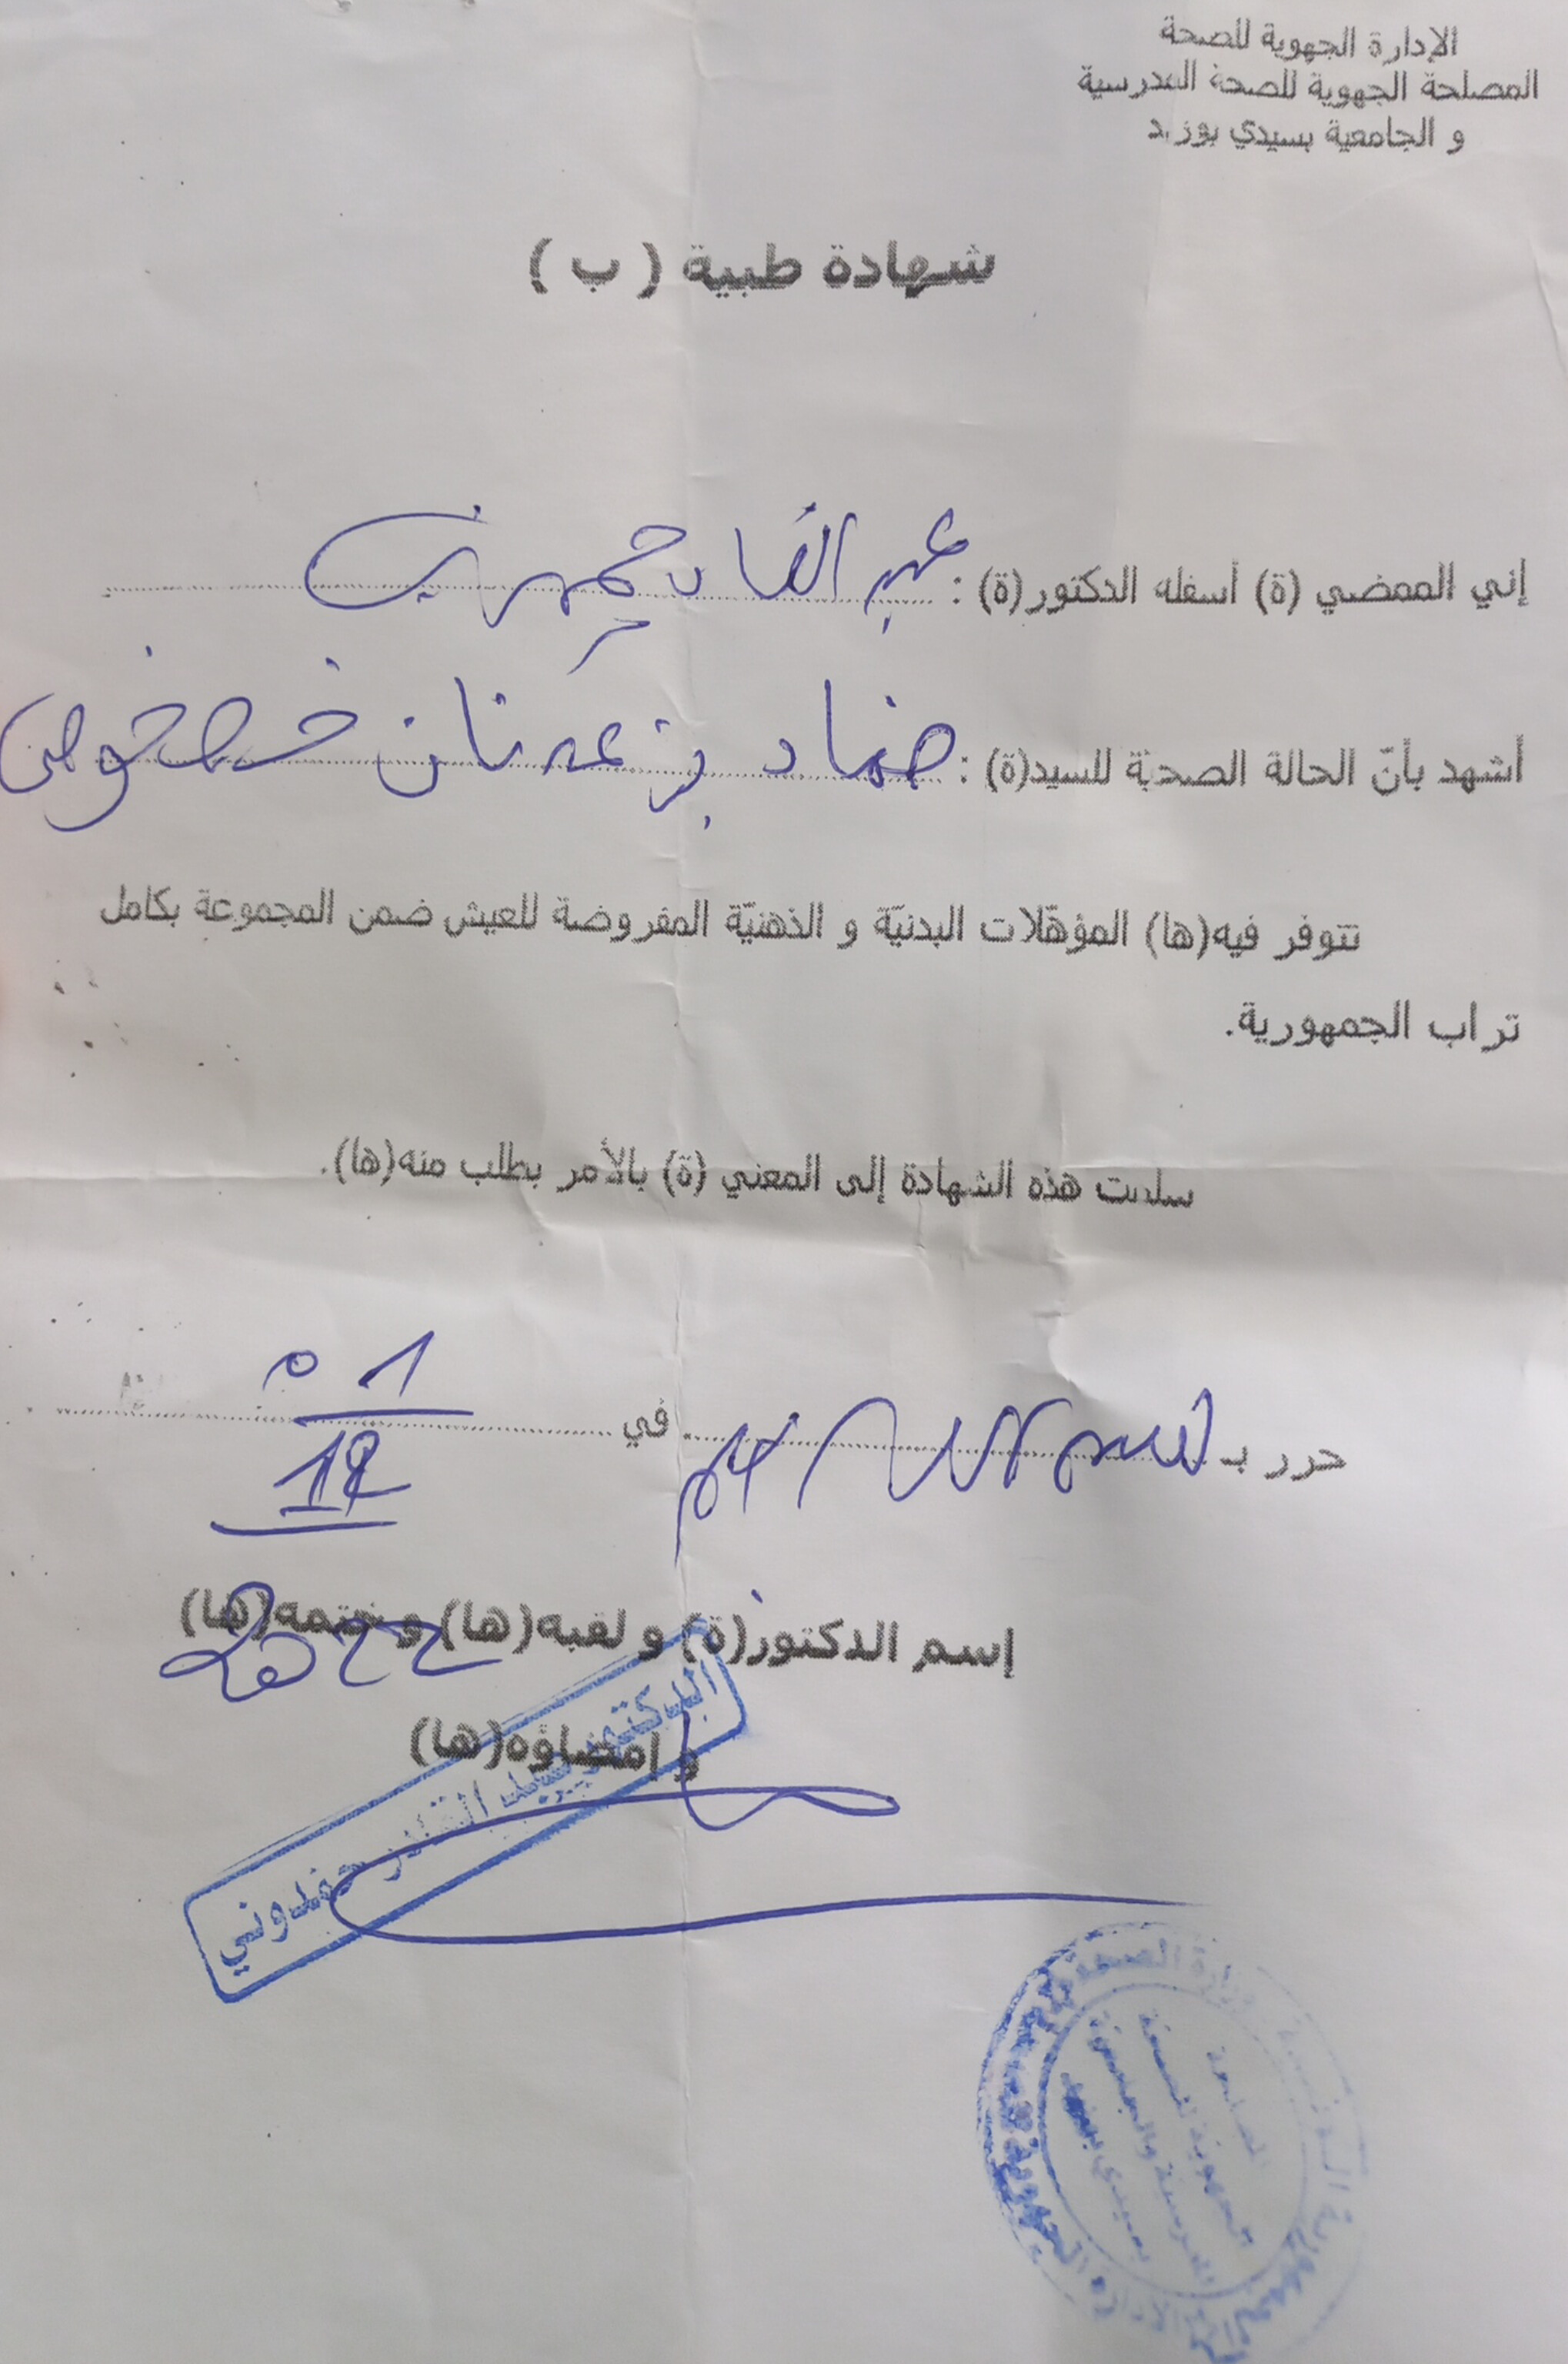 الإدارة الجهوية للصحة
المصلحة الجهوية للصحة المدرسية
و الجامعية بسيدي بوزيد
شهادة طبية ( ب )
إني الممضي (ة) أسفله الدكتور(ة) : عبد القادر
أشهد بأنّ الحالة الصحيّة للسيد(ة) : ضماد بن عدنان
تتوفر فيه(ها) المؤهّلات البدنيّة و الذهنيّة المفروضة للعيش ضمن المجموعة بكامل
تراب الجمهورية.
سلمت هذه الشهادة إلى المعني (ة) بالأمر بطلب منه(ها).
حرر بـ في 01
12
إسم الدكتور(ة) و لقبه(ها) و ختمه(ها)
2022
و إمضاؤه(ها)
الدكتور عبد القادر حمدوني